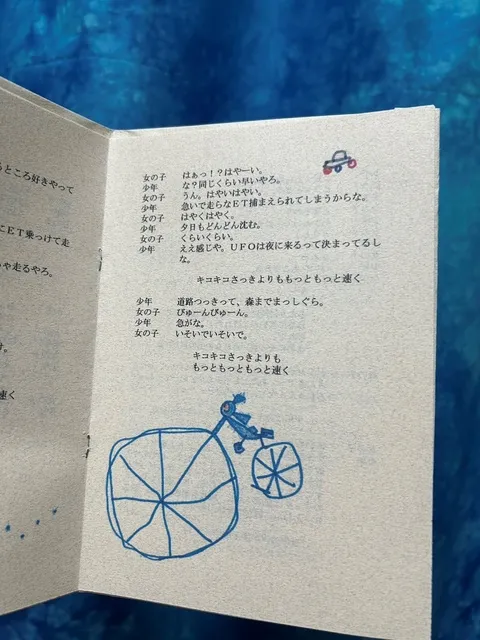 るところ好きやって
にＥＴ乗っけて走
ゃ走るやろ。
け。
速く
女の子　はぁっ！？はやーい。
少年　な？同じくらい早いやろ。
女の子　うん。はやいはやい。
少年　急いで走らなＥＴ捕まえられてしまうからな。
女の子　はやくはやく。
少年　夕日もどんどん沈む。
女の子　くらいくらい。
少年　ええ感じや。ＵＦＯは夜に来るって決まってるしな。
キコキコさっきよりももっともっと速く
少年　道路つっきって、森までまっしぐら。
女の子　びゅーんびゅーん。
少年　急がな。
女の子　いそいでいそいで。
キコキコさっきよりも
もっともっともっと速く